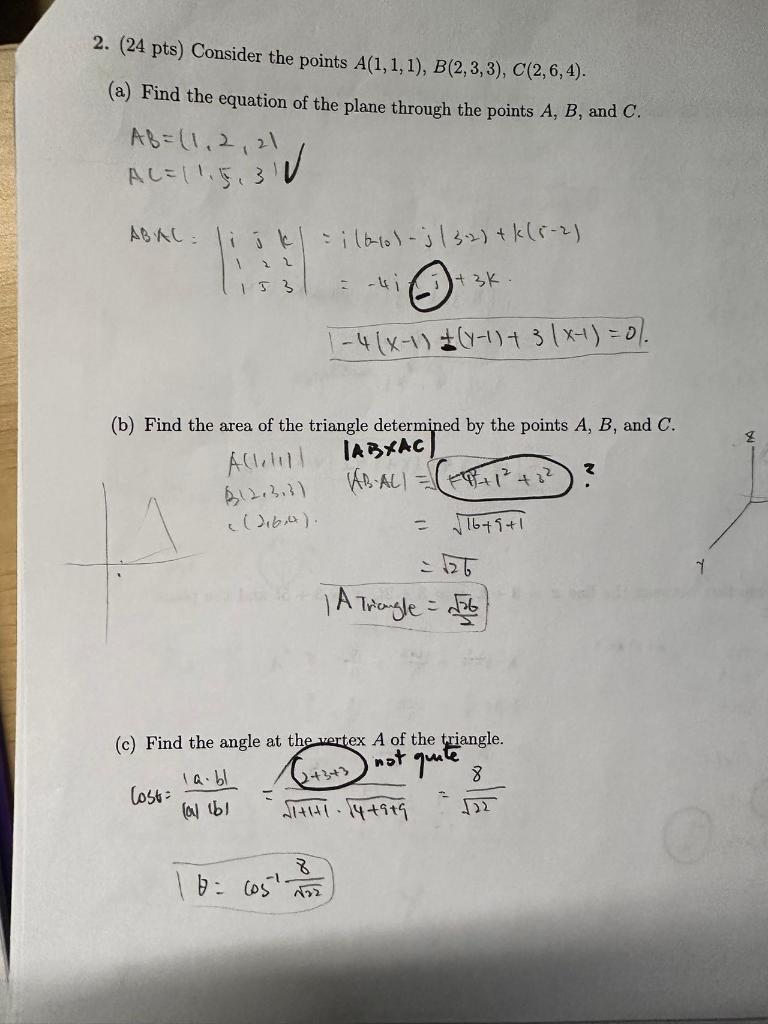 2. (24 pts) Consider the points A(1, 1, 1), B(2, 3, 3), C(2, 6, 4).
(a) Find the equation of the plane through the points A, B, and C.
AB = (1, 2, 2)
AC = (1, 5, 3) ✓
AB·AC = | i j k | = i(6-10) - j(3-2) + k(5-2)
1 2 2
1 5 3 = -4i - j + 3k.
-4(x-1) ± (y-1) + 3(x-1) = 0.
(b) Find the area of the triangle determined by the points A, B, and C.
|AB×AC|
A(1,1,1)
B(2,3,3) |AB·AC| = 1² + 3² ?
c(2,6,4). = √16+9+1
= √26
A Triangle = √26/2
z
y
(c) Find the angle at the vertex A of the triangle.
not quite
cosθ = |a·b| / |a| |b| = 2+3+3 / √1+1+1 · √4+9+9 = 8 / √22
θ = cos⁻¹ 8/√22